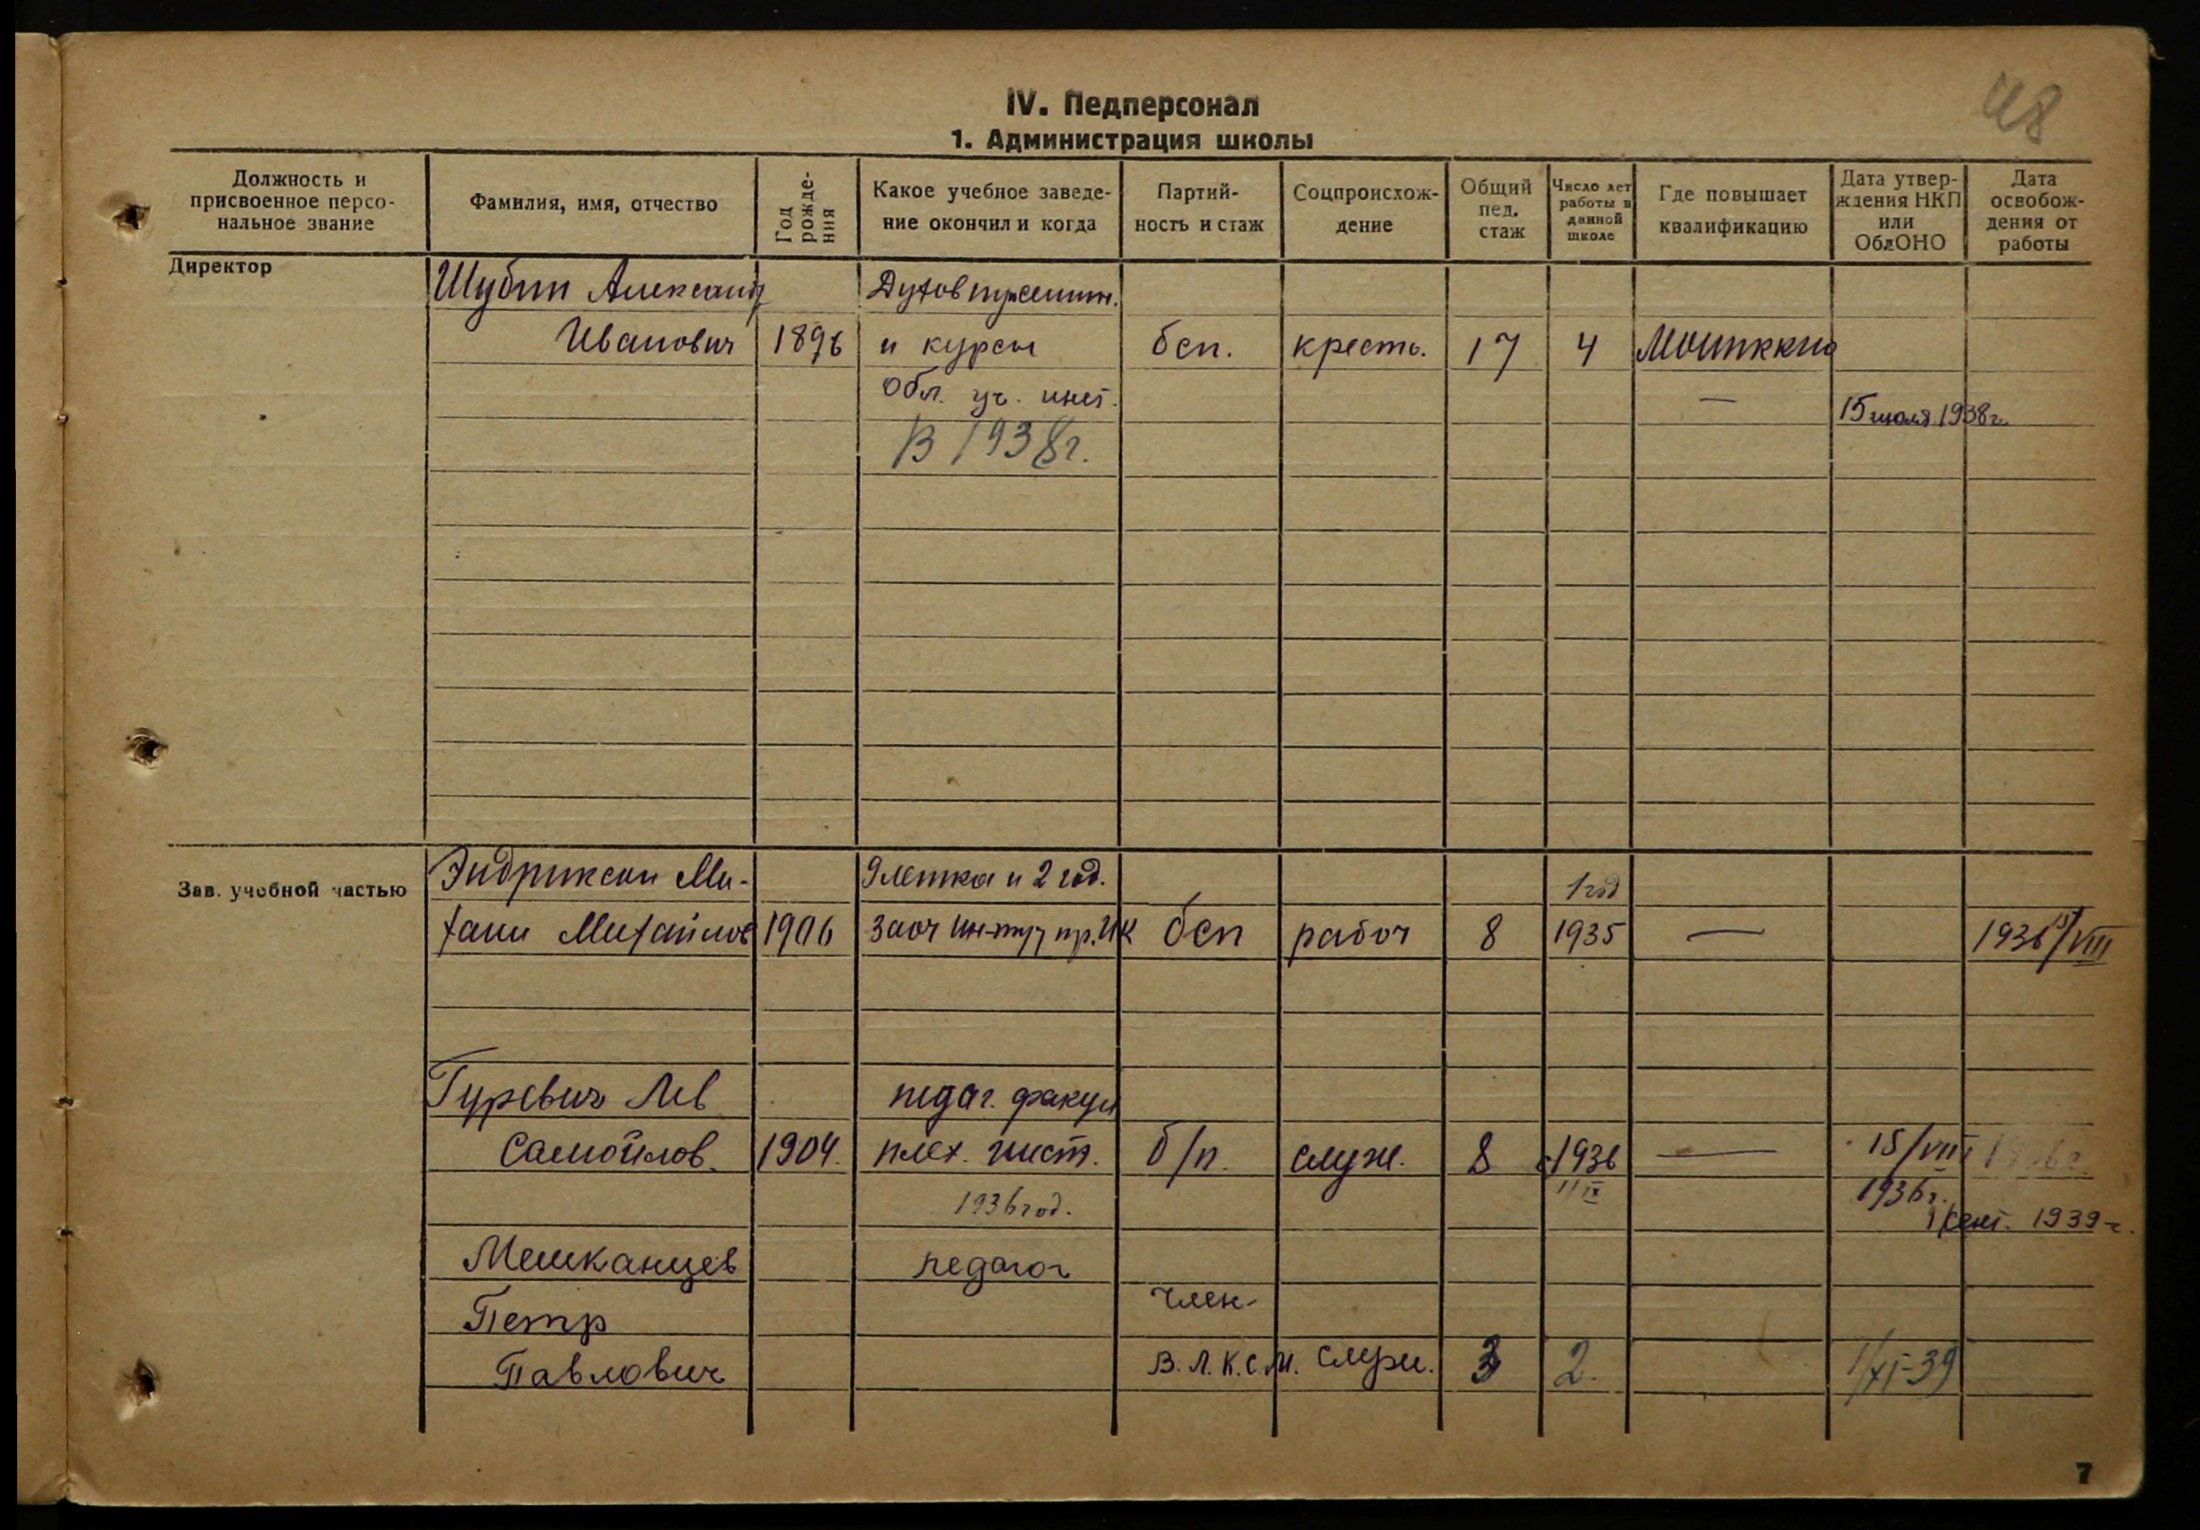 48
IV. Педперсонал
1. Администрация школы
Должность и присвоенное персо- нальное звание
Фамилия, имя, отчество
Год рожде- ния
Какое учебное заведе- ние окончил и когда
Партий- ность и стаж
Соцпроисхож- дение
Общий пед. стаж
Число лет работы в данной школе
Где повышает квалификацию
Дата утвер- ждения НКП или ОблОНО
Дата освобож- дения от работы
Директор
Шубин Александр
Иванович 1896 и курсы бсп. кресть. 17 4
Обл. уч. инст. — 15 июля 1938г.
В 1938г.
Зав. учебной частью
Эндриксон Ми- 9 летка и 2 год. 1 год
хаил Михайлов 1906 заоч бсп рабоч 8 1935 — 1936 /VIII
Гуревич Лев педаг. факул
Самойлов. 1904. плех. инст. б/п. служ. 8 1936 — 15/VIII
1936 год. 1/IX 1936г.
1 сент. 1939 г.
Мешканцев педагог
Петр член
Павлович В.Л.К.С.М. служ. 3 2. 1/XI-39
7